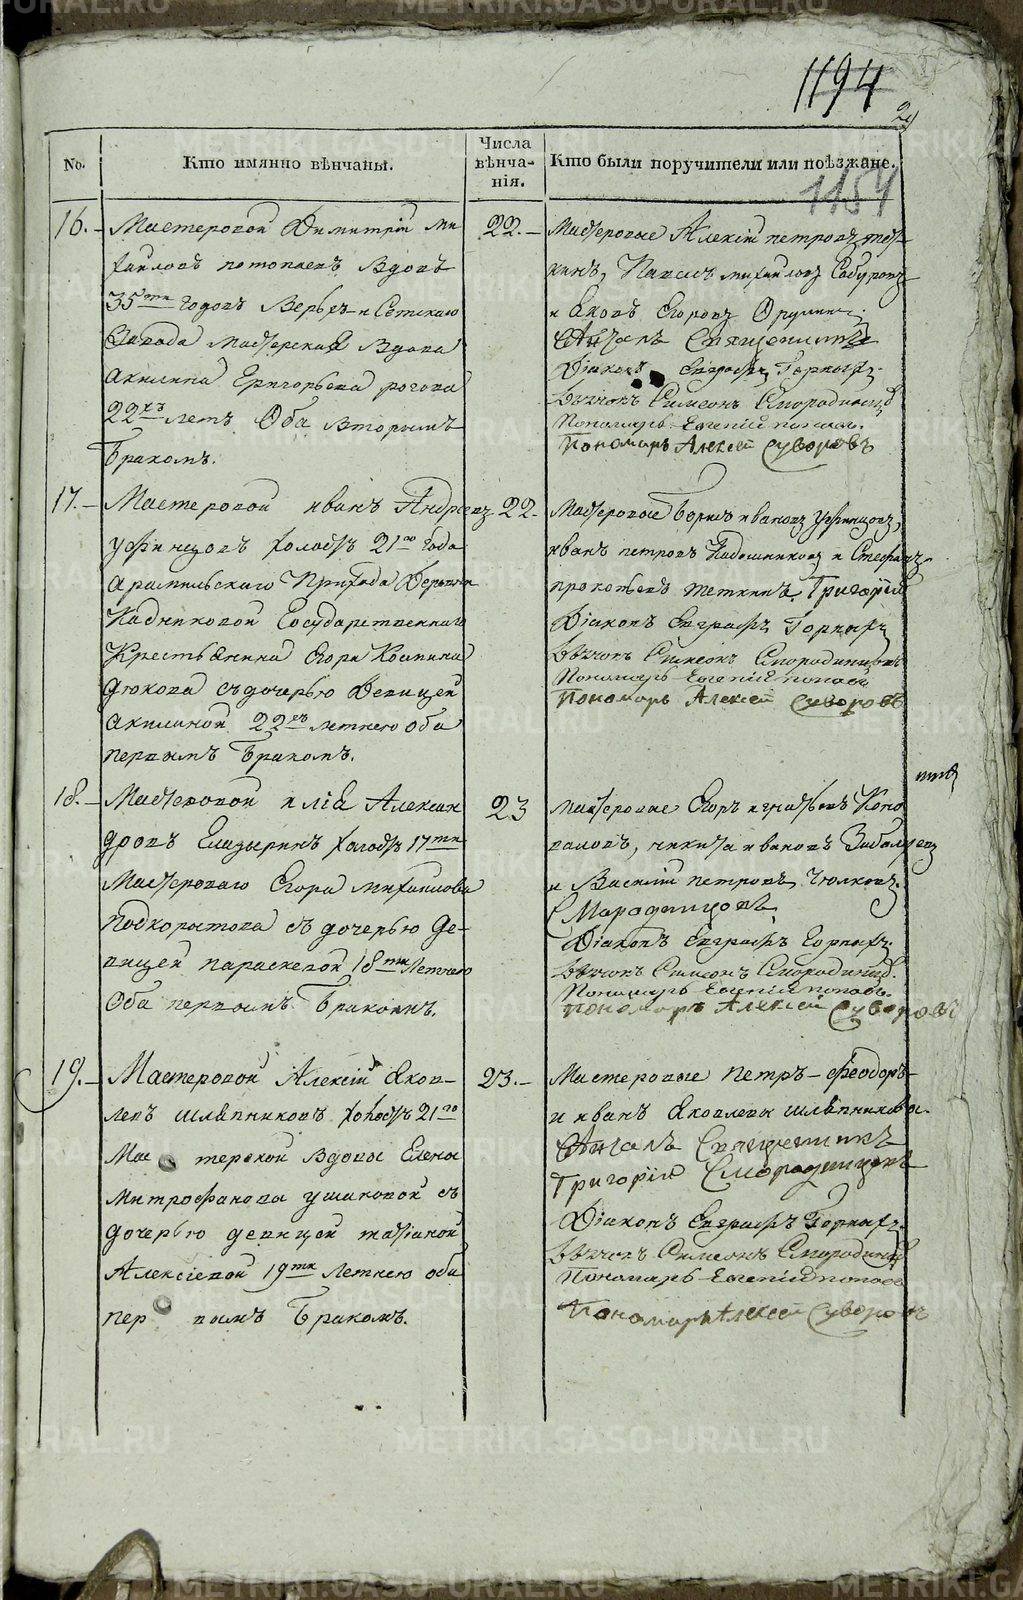 1194
24
No.
Кто имянно вѣнчаны.
Числа
вѣнча-
нія.
Кто были поручители или поѣзжане.
1154
16.
Мастеровой Димитрій Ми
хайловъ потопаевъ вдовъ
35ти годовъ Верьхъ Исетскаго
Завода Мастерская Вдова
Акилина Григорьева рогова
22хъ летъ Оба вторымъ
Бракомъ.
22.
Мастеровые Алексій петровъ
Павелъ михайловъ
и Яковъ Егоровъ
Священникъ
Діаконъ Евграфъ Горныхъ
Дьячокъ Симеонъ Смородинцов
Пономарь Евгеній поповъ.
Пономарь Алексей Суворовъ
17.
Мастеровой иванъ Андреевъ
уфинцовъ холостъ 21го года
арамильскаго Прихода Деревни
Кадниковой Государственнаго
Крестьянина Егора Космина
дюкова съ дочерью Девицей
акилиной 22хъ летнею оба
первымъ Бракомъ.
22.
Мастеровые Борисъ ивановъ Уфинцовъ,
иванъ петровъ и Стефанъ
прокопьевъ теткинъ. Григорій
Діаконъ Евграфъ Горныхъ
Дьячокъ Симеонъ Смородинцовъ
Пономарь Евгеній поповъ
Пономарь Алексей Суворовъ
18.
Мастеровой илія Алексан
дровъ Елизарьинъ холостъ 17ти
Мастероваго Егора михайлова
подкорытова съ дочерью Де-
вицей параскевой 18ти Летнею
Оба первымъ Бракомъ.
23
Мастеровые Егоръ игнатьевъ Коно
валовъ, никита ивановъ
и Василій петровъ Чюлковъ.
Смародинцовъ
Діаконъ Евграфъ Горныхъ.
Дьячокъ Симеонъ Смородинцов.
Пономарь Евгеній поповъ.
Пономарь Алексей Суворовъ
19.
Мастеровой Алексій Яков-
левъ шляпниковъ холостъ 21го
Мас терской вдовы Елены
митрофанова ушаковой съ
дочерью девицей татіаной
Алексіевой 19ти Летнею оба
пер вымъ Бракомъ.
23.
Мастеровые петръ - Феодоръ
и иванъ Яковлевы шляпниковы.
Священникъ
Григорій Смородинцовъ
Діаконъ Евграфъ Горныхъ.
Дьячокъ Симеонъ Смородинцов
Пономарь Евгеній поповъ
Пономарь Алексей Суворовъ
METRIKI.GASO-URAL.RU